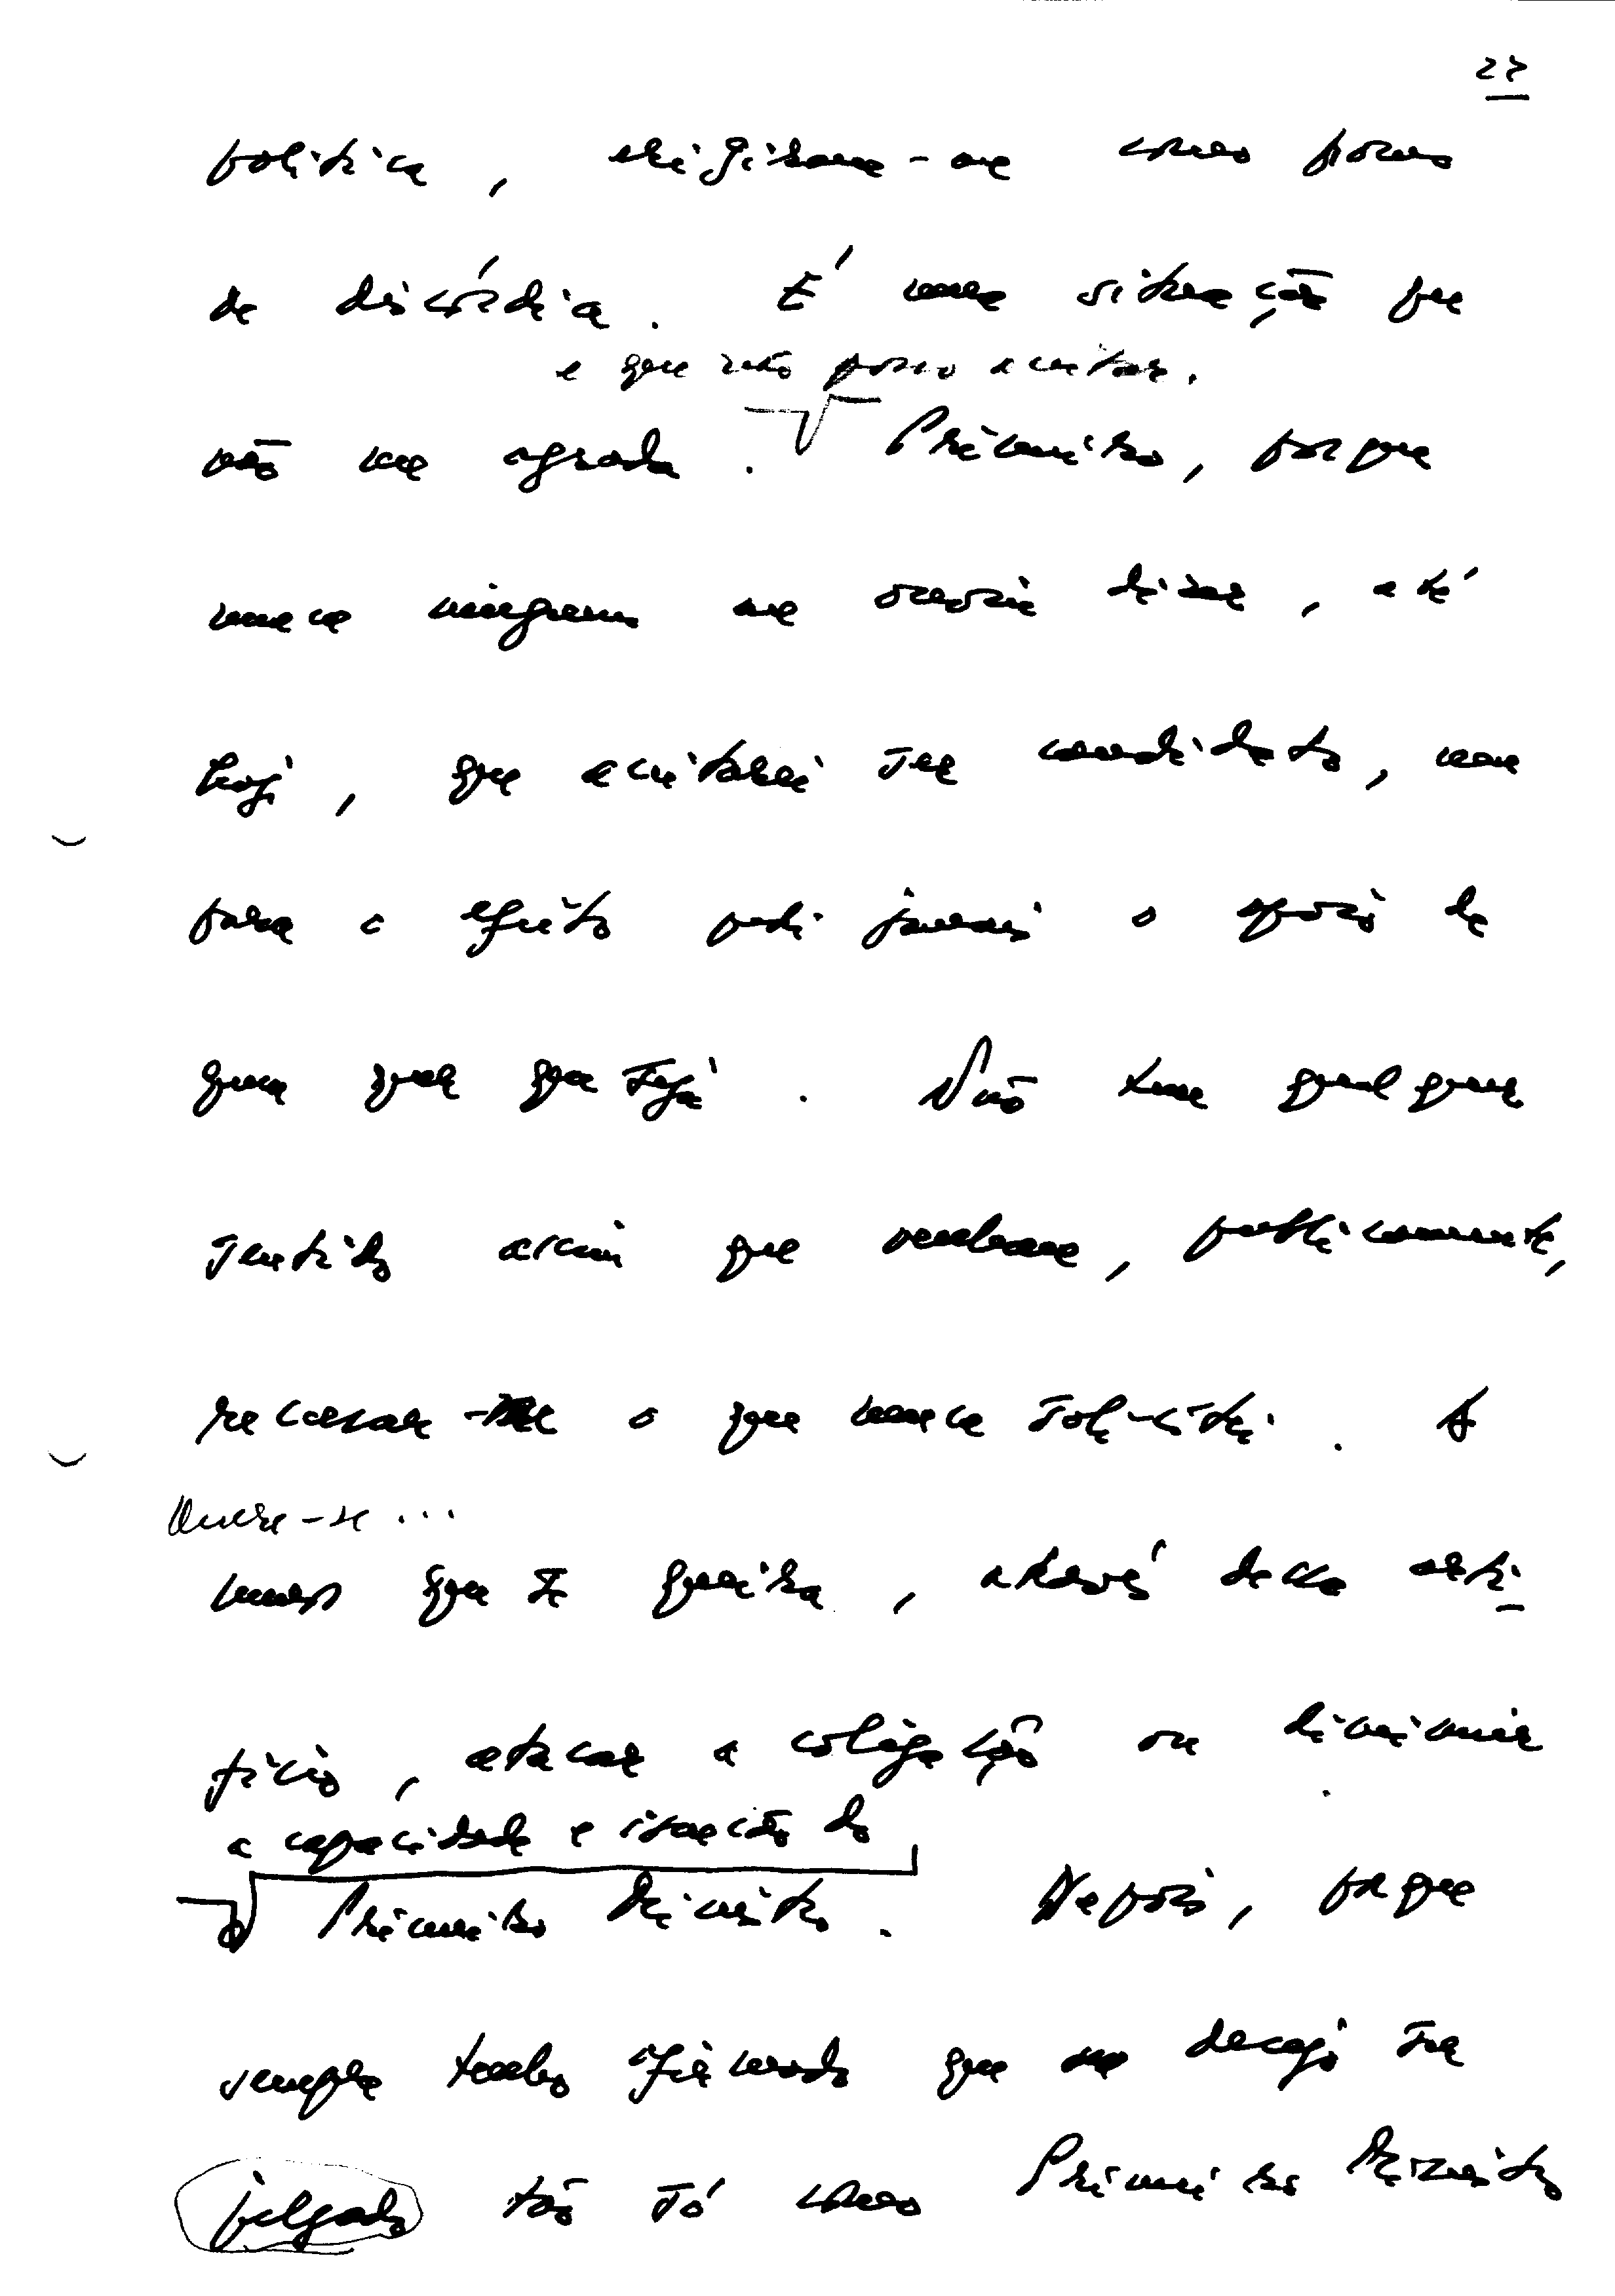 27
política, erigiram-me como pomo
de discórdia. É uma situação que
e que não posso aceitar.
não me agrada. Primeiro, porque
nunca ninguem me ouviu dizer, até
hoje, que aceitarei ser candidato, nem
para o efeito pedi jamais o apoio de
quem quer que seja. Não tem qualquer
sentido assim que venham, publicamente,
recusar-me o que nunca solicitei. A
Quere-se...
menos que se queira, através desse arti-
fício, atacar a coligação ou diminuir
a capacidade e isenção do
Primeiro Ministro. Depois, porque
sempre tenho afirmado que me desejo ser
julgado tão só como Primeiro Ministro